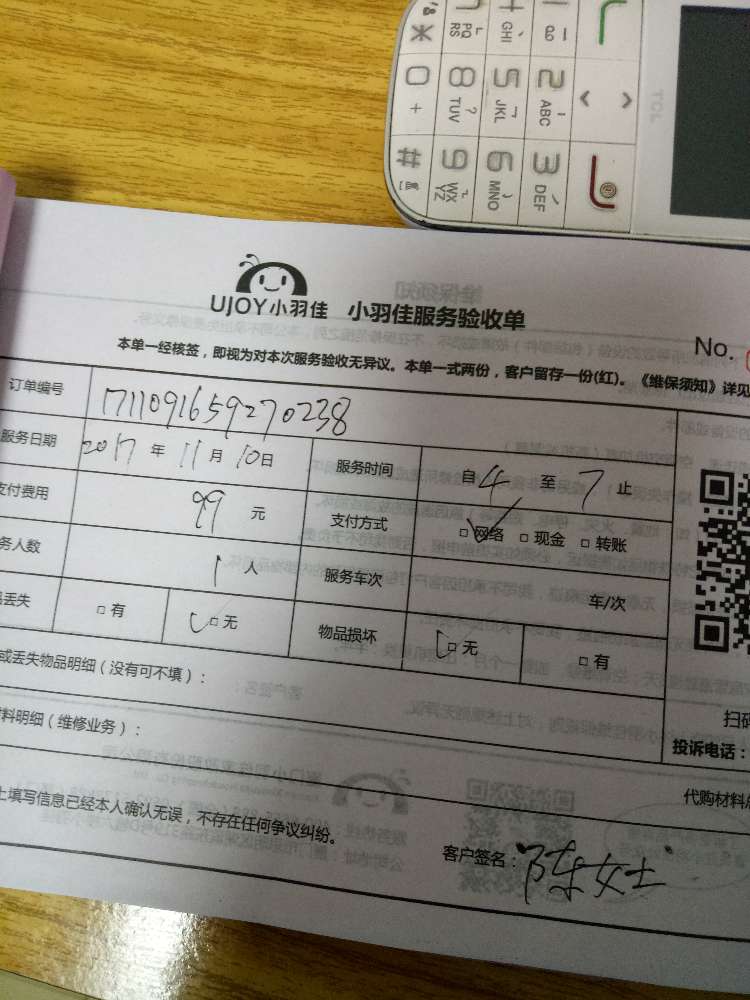 TCL
* 0 + #
7 PQRS 8 TUV 9 WXYZ
4 GHI 5 JKL 6 MNO
1 2 ABC 3 DEF
UJOY小羽佳 小羽佳服务验收单
No.
本单一经核签，即视为对本次服务验收无异议。本单一式两份，客户留存一份(红)。《维保须知》详见
订单编号 1711091659270238
服务日期 2017 年 11 月 10 日 服务时间 自 4 至 7 止
支付费用 99 元 支付方式 □网络 □现金 □转账
务人数 1 人 服务车次 车/次
丢失 □有 □无 物品损坏 □无 □有
或丢失物品明细（没有可不填）：
料明细（维修业务）：
扫码
投诉电话：
代购材料
上填写信息已经本人确认无误，不存在任何争议纠纷。
客户签名：陈女士